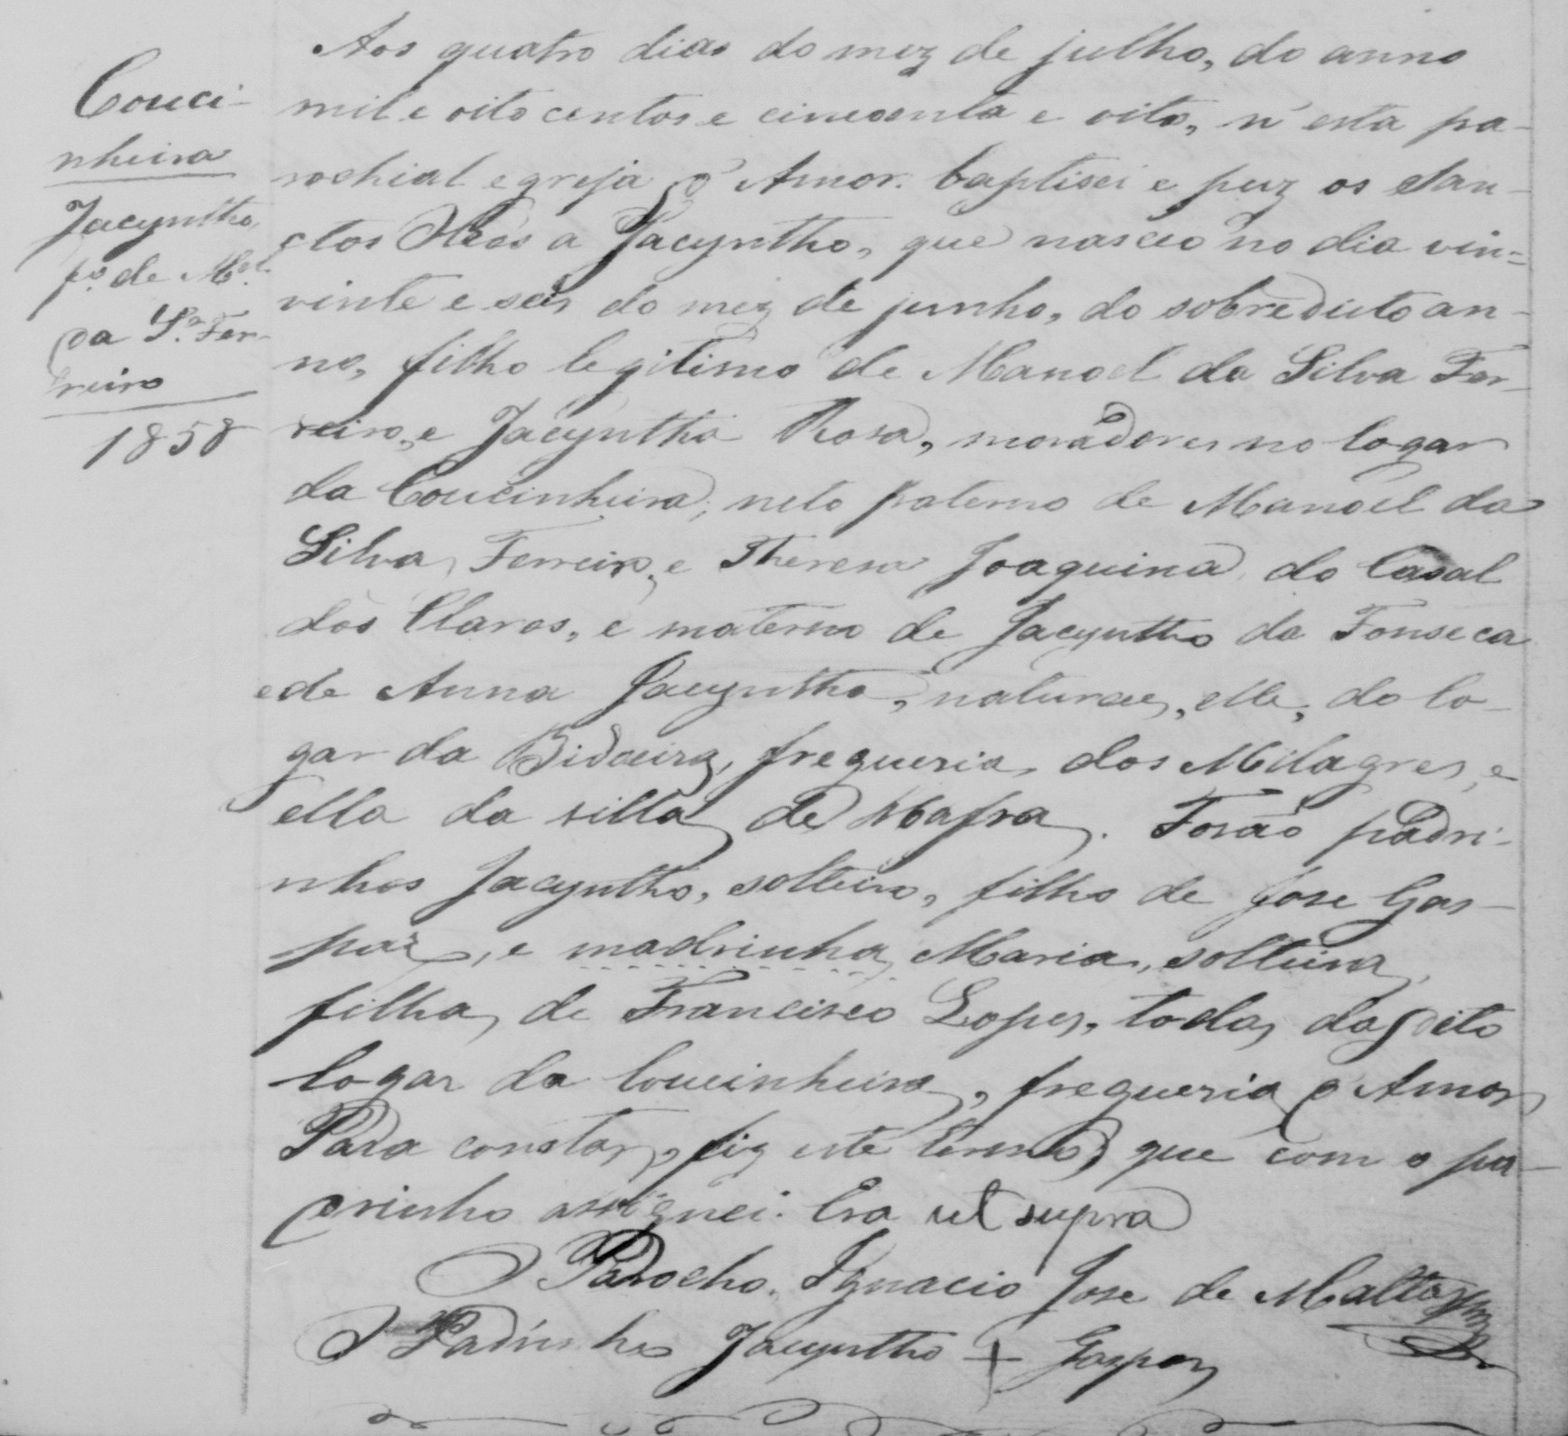 Couci-
nheira
Jacyntho,
fº. de Mel.
da Sª. Fer-
reiro
1858
Aos quatro dias do mez de julho, do anno
mil e oito centos e cincoenta e oito, n'esta pa-
rochial egreja d'Amor. baptisei e puz os San-
ctos Oleos a Jacyntho, que nasceo no dia vin=
vinte e seis do mez de junho, do sobreduto an-
no, filho legitimo de Manoel da Silva Fer-
reiro, e Jacyntha Rosa, moradores no logar
da Coucinheira; neto paterno de Manoel da
Silva Ferreiro, e Theresa Joaquina, do Casal
dos Claros, e materno de Jacyntho da Fonseca
e de Anna Jacyntha, naturaes, elle, do lo-
gar da Bidoeira, freguesia, dos Milagres, e
ella da villa de Mafra. Forão padri-
nhos Jacyntho, solteiro, filho de Jose Gas-
par, e madrinha Maria, solteira,
filha de Francisco Lopes, todos do dito
logar da Coucinheira, freguesia d'Amor
Para constar, fiz este termo, que com o pa-
drinho assignei. Era ut supra
O Parocho, Ignacio Jose de Mattos
O Padrinho Jacyntho + Gaspar